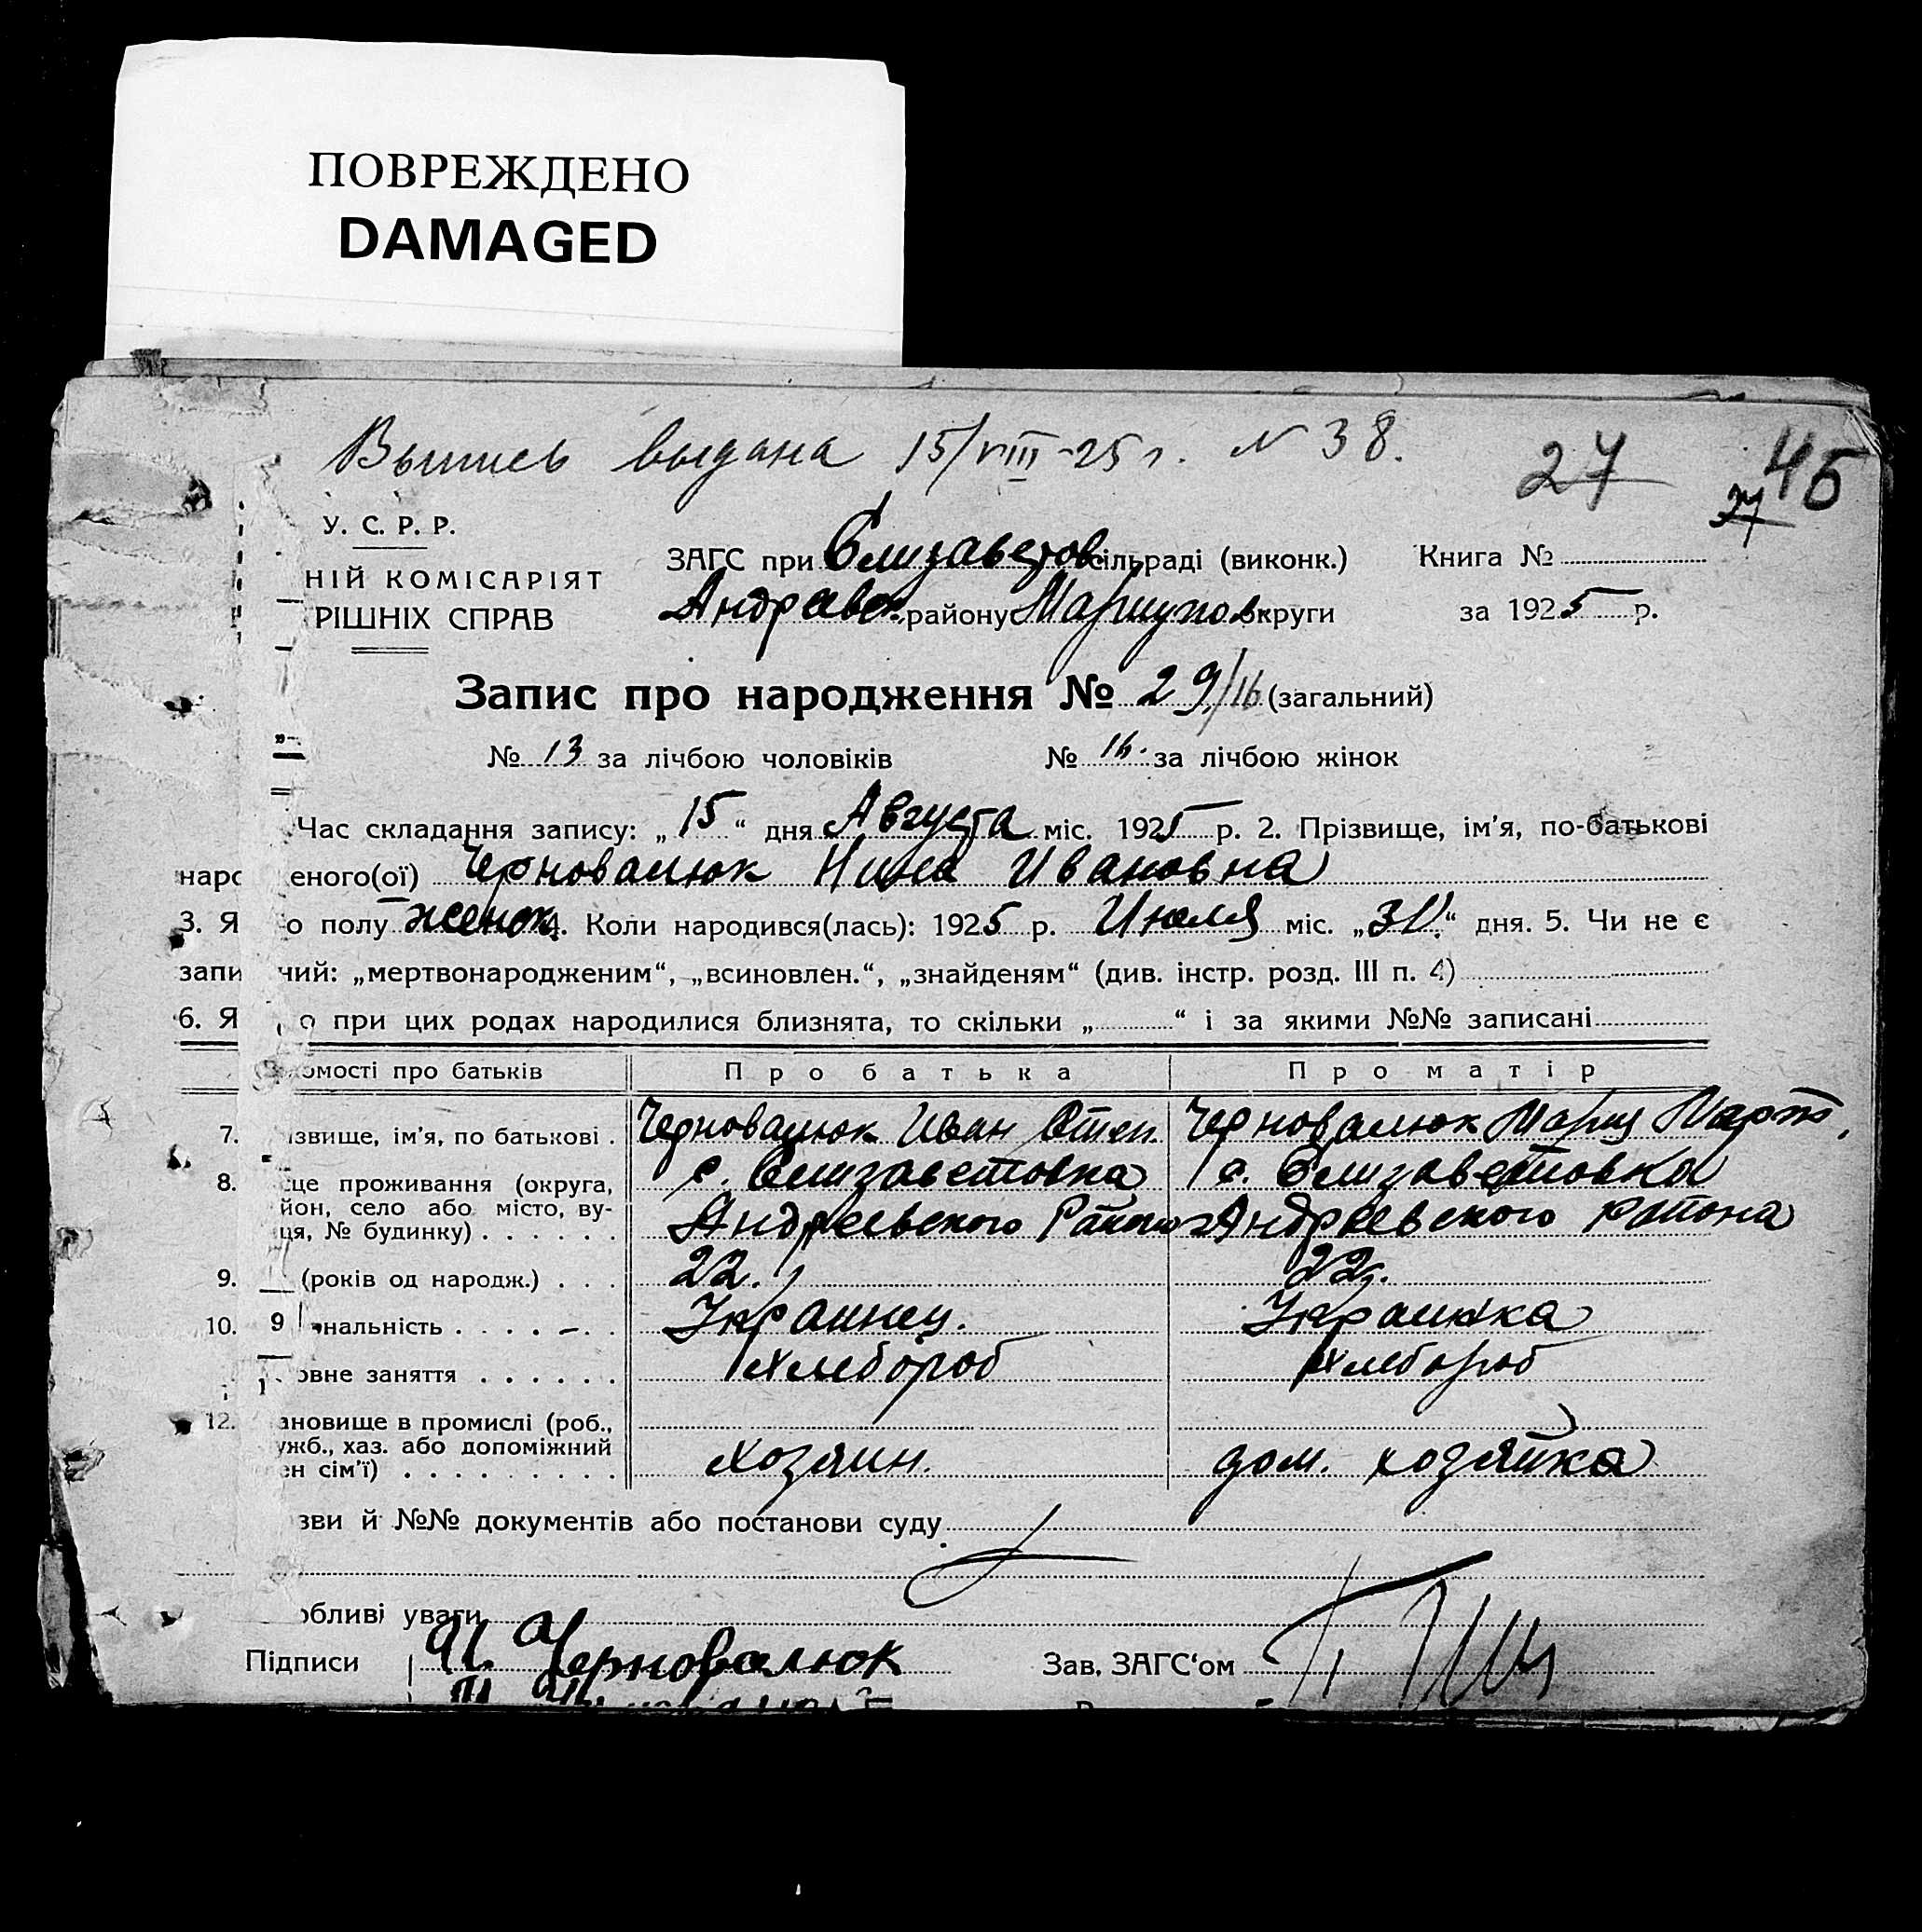 ПОВРЕЖДЕНО
DAMAGED
Выпись выдана 15/VIII-25 г. N 38.
27 45
27
У. С. Р. Р.
НІЙ КОМІСАРІЯТ
РІШНІХ СПРАВ
ЗАГС при Елизаветов. сільраді (виконк.) Книга №
Андреевск. району Мариупол. округи за 1925 р.
Запис про народження № 29/16 (загальний)
№ 13 за лічбою чоловіків № 16. за лічбою жінок
Час складання запису: „15“ дня Августа міс. 1925 р. 2. Прізвище, ім’я, по-батькові
наро еного(ої) Черновалюк Нина Ивановна
3. Я о полу женск. 4. Коли народився(лась): 1925 р. Июля міс. „31.“ дня. 5. Чи не є
запи ний: „мертвонародженим“, „всиновлен.“, „знайденям“ (див. інстр. розд. III п. 4)
6. Я о при цих родах народилися близнята, то скільки „ “ і за якими №№ записані
омості про батьків Про батька Про матір
7. ізвище, ім’я, по батькові . Черновалюк Иван Степ. Черновалюк Мария Март.
8. це проживання (округа, с. Елизаветовка с. Елизаветовка
йон, село або місто, ву-
ця, № будинку) . . . . . . Андреевского Района Андреевского района
9. (років од народж.) . . . 22. 22.
10. 9 нальність . . . . . . Украинец. Украинка
1 овне заняття . . . . . . Хлебороб Хлебороб
12. ановище в промислі (роб.,
ужб., хаз. або допоміжний
ен сім’ї) . . . . . . . . . хозяин. дом. хозяйка
зви й №№ документів або постанови суду
обливі уваги
Підписи И. Черновалюк Зав. ЗАГС‘ом